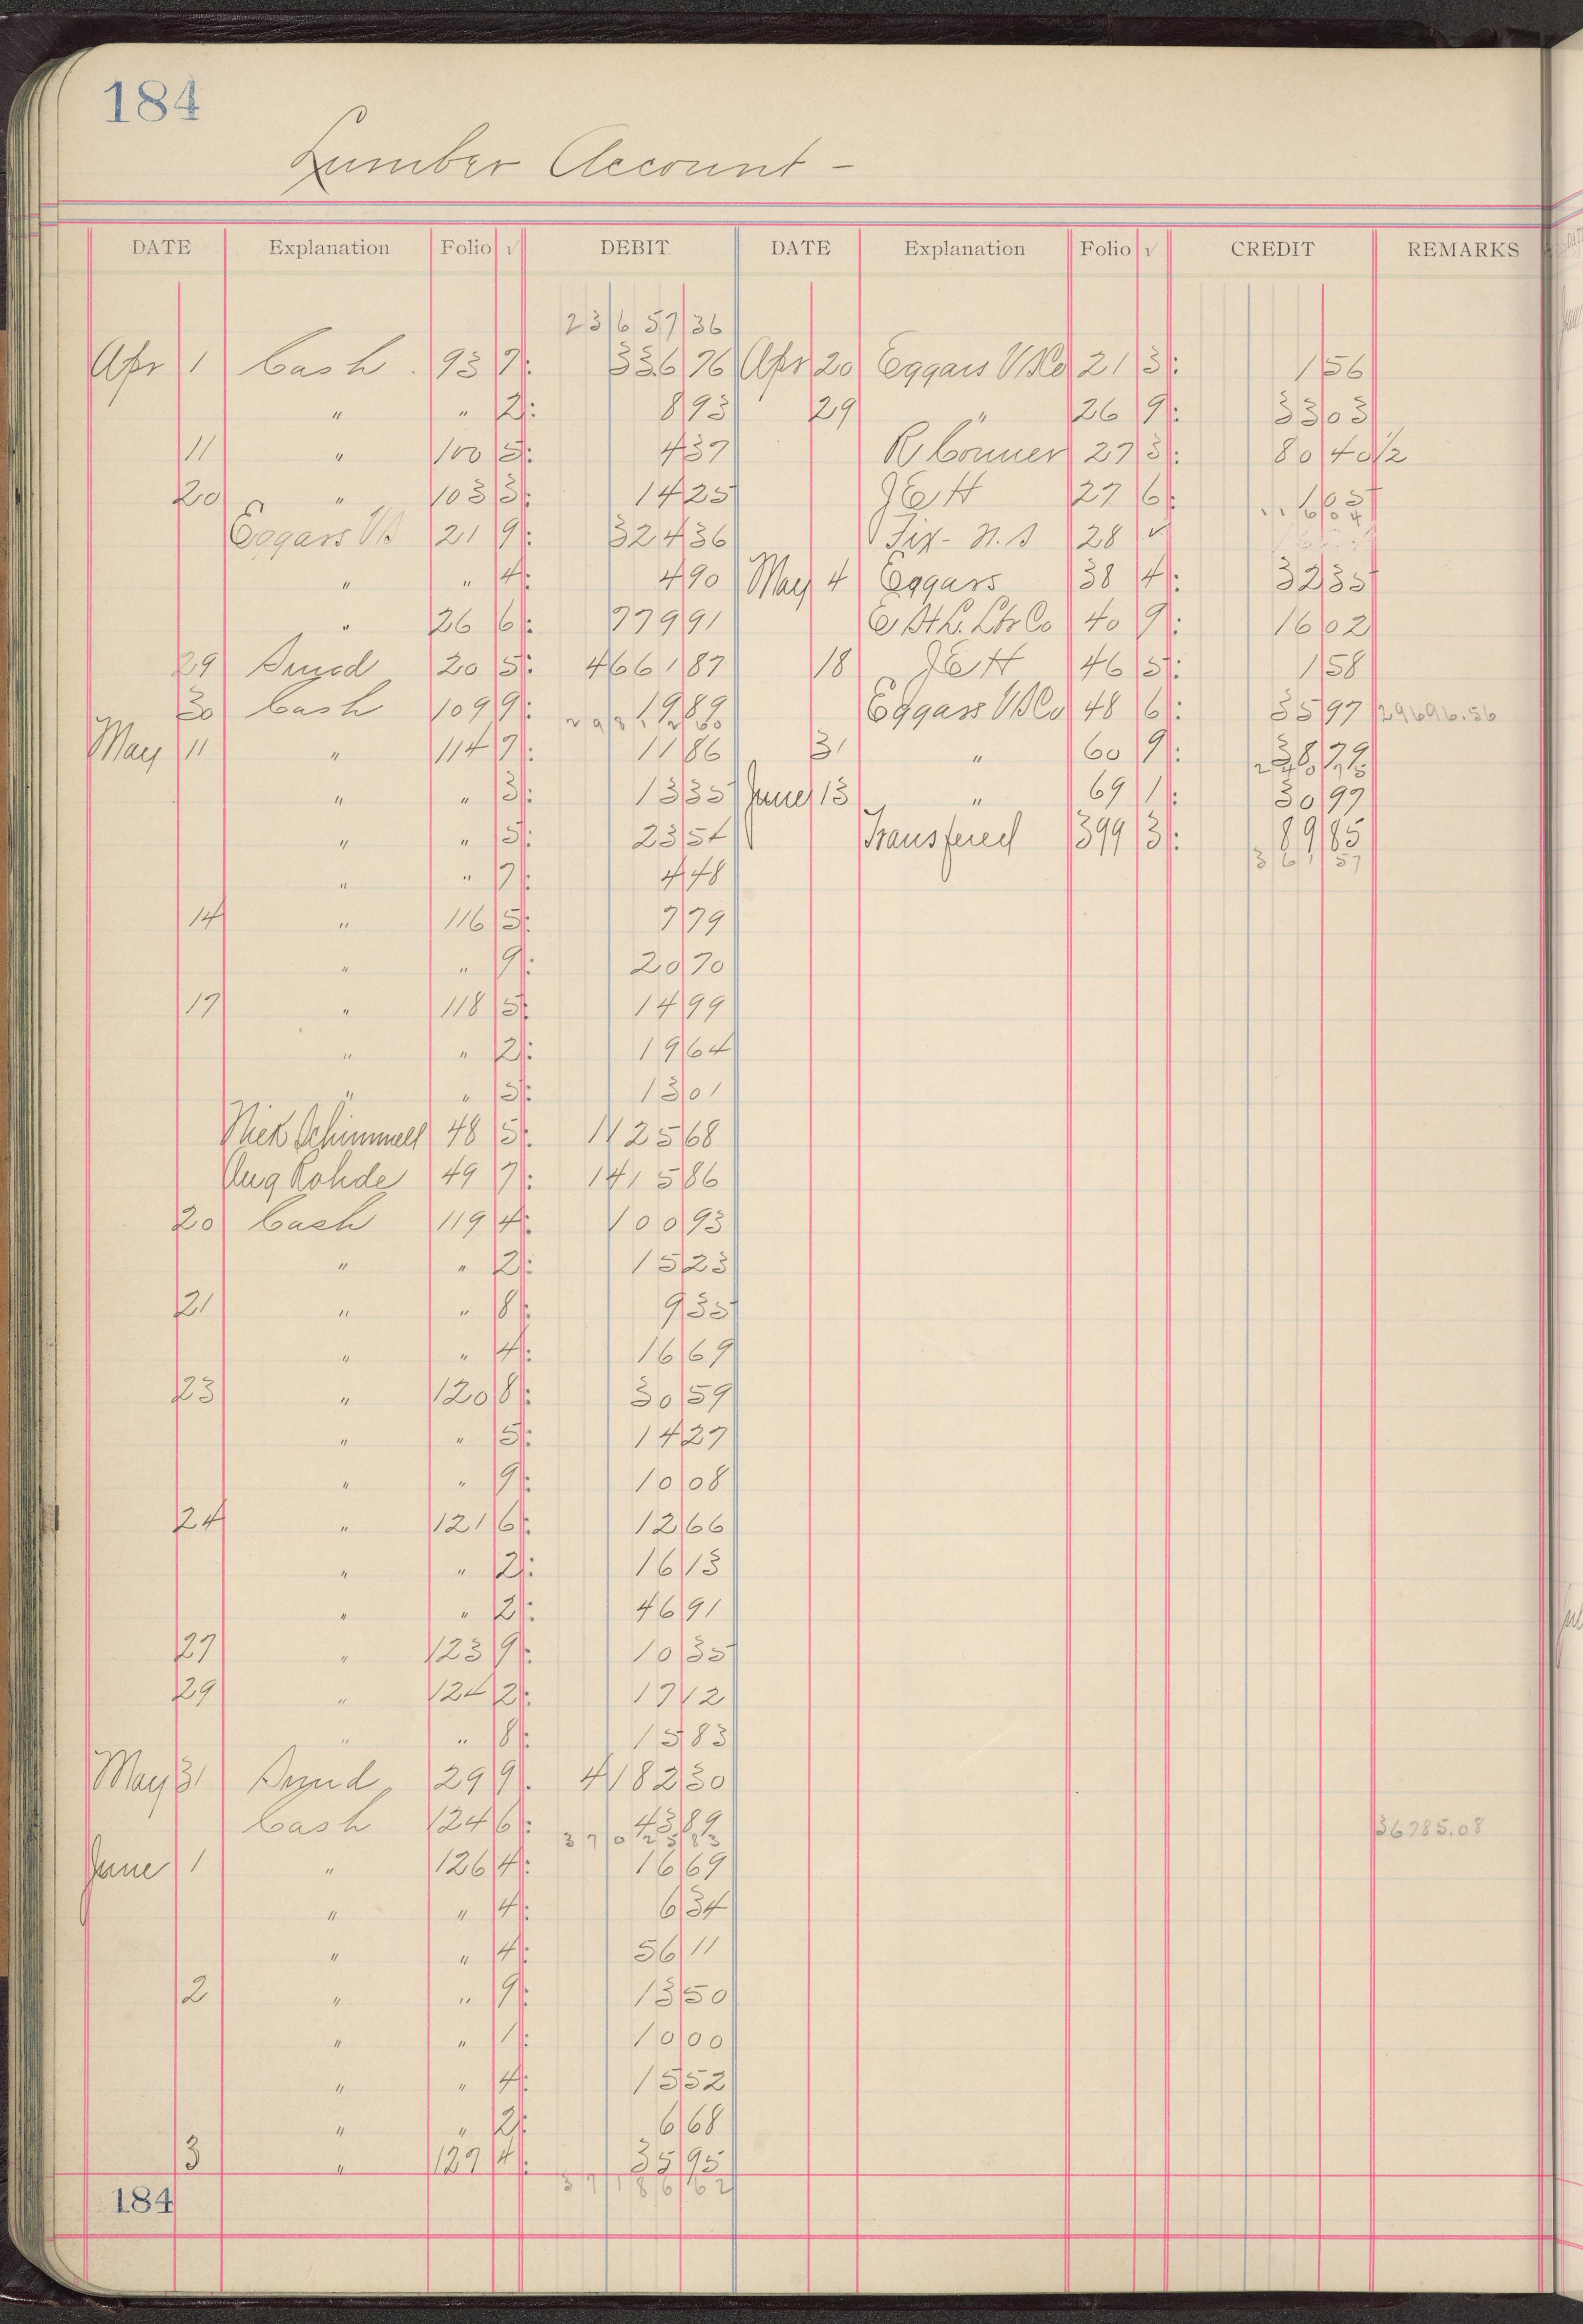 184
Lumber Account -
DATE Explanation Folio √ DEBIT DATE Explanation Folio √ CREDIT REMARKS
23657 36
Apr 1 Cash 93 7: 336 76 Apr 20 Eggars VSCo 21 3: 1 56
" " 2: 8 93 29 " 26 9: 33 03
11 " 100 5: 4 37 R Conner 27 3: 80 40 1/2
20 " 103 3: 14 25 JEH 27 6: 1 05
Eggars VS 21 9: 324 36 Fix- n.s 28 ✓
" " 4: 4 90 May 4 Eggars 38 4: 32 35
" 26 6: 779 91 E St L. Lbr Co 40 9: 16 02
29 Sund 20 5: 4661 87 18 JEH 46 5: 1 58
30 Cash 109 9: 19 89 Eggars VSCo 48 6: 35 97 29696.56
29831 20
May 11 " 114 7: 11 86 31 " 60 9: 38 79
240 75
" " 3: 13 35 June 13 " 69 1: 30 97
" " 5: 23 54 Transfered 399 3: 89 85
361 57
" " 7: 4 48
14 " 116 5: 7 79
" " 9: 20 70
17 " 118 5: 14 99
" " 2: 19 64
" " 5: 13 01
Nick Schimmell 48 5: 1125 68
Aug Rohde 49 7: 1415 86
20 Cash 119 4: 100 93
" " 2: 15 23
21 " " 8: 9 35
" " 4: 16 69
23 " 120 8: 30 59
" " 5: 14 27
" " 9: 10 08
24 " 121 6: 12 66
" " 2: 16 13
" " 2: 46 91
27 " 123 9: 10 35
29 " 124 2: 17 12
" " 8: 15 83
May 31 Sund 29 9. 4182 30
Cash 124 6: 43 89 36785.08
37025 83
June 1 " 126 4: 16 69
" " 4: 6 34
" " 4: 56 11
2 " " 9: 13 50
" " 1: 10 00
" " 4: 15 52
" " 2: 6 68
3 " 127 4: 35 95
37186 62
184